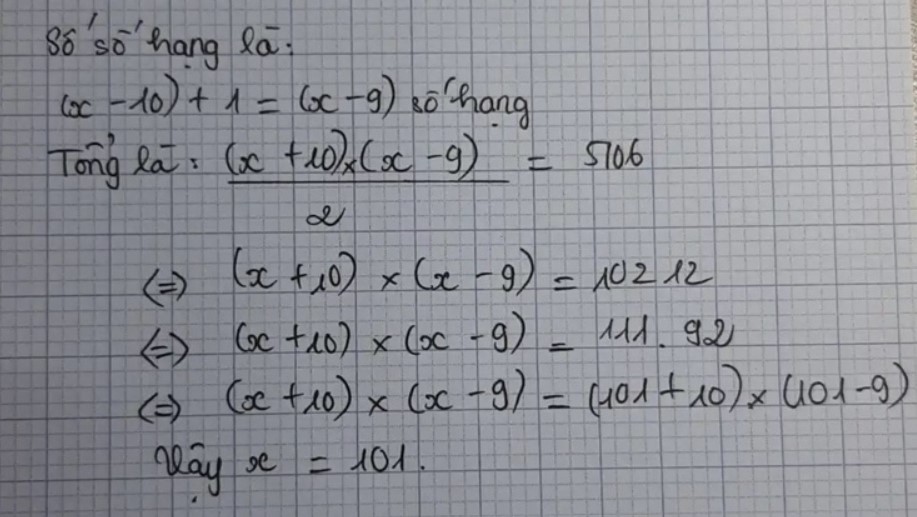 Số số hạng là:
(x - 10) + 1 = (x - 9) số hạng
Tổng là: (x + 10) × (x - 9) = 5106
2
<=> (x + 10) × (x - 9) = 10212
<=> (x + 10) × (x - 9) = 111 . 92
<=> (x + 10) × (x - 9) = (101 + 10) × (101 - 9)
Vậy x = 101.